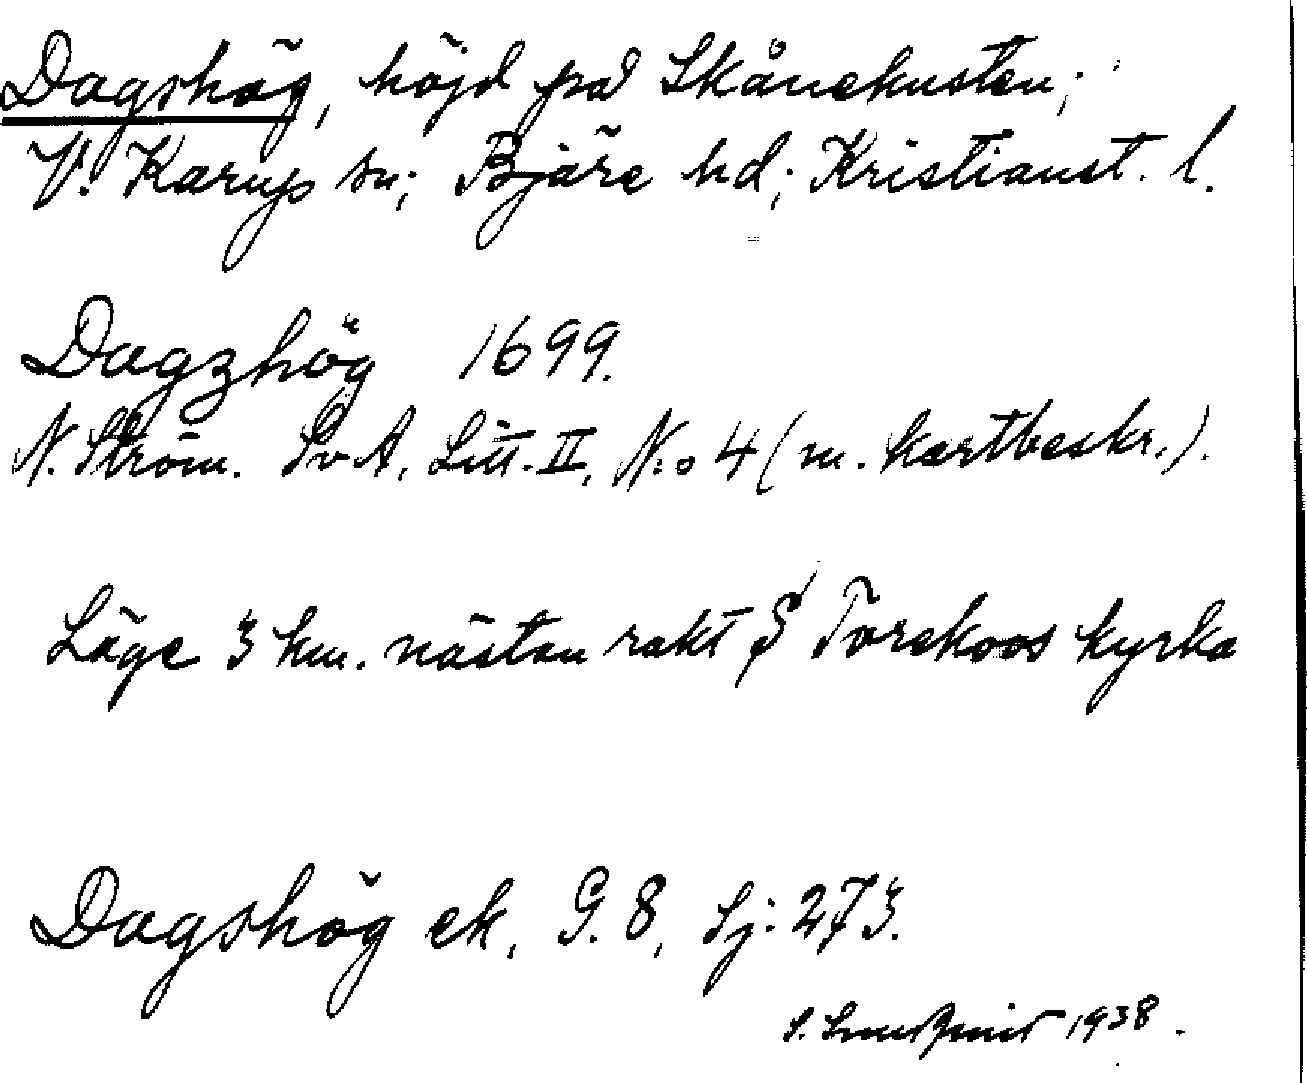 Dagshög, höjd på Skånekusten;
V. Karups sn; Bjäre hd; Kristianst. l.
Dagzhög 1699.
N. Ström. SvA, Litt. II, N:o 4 (m. kartbeskr.).
Läge 3 km. nästan rakt S Torekovs kyrka
Dagshög ek, G. 8, Sj: 273.
S. 1938.